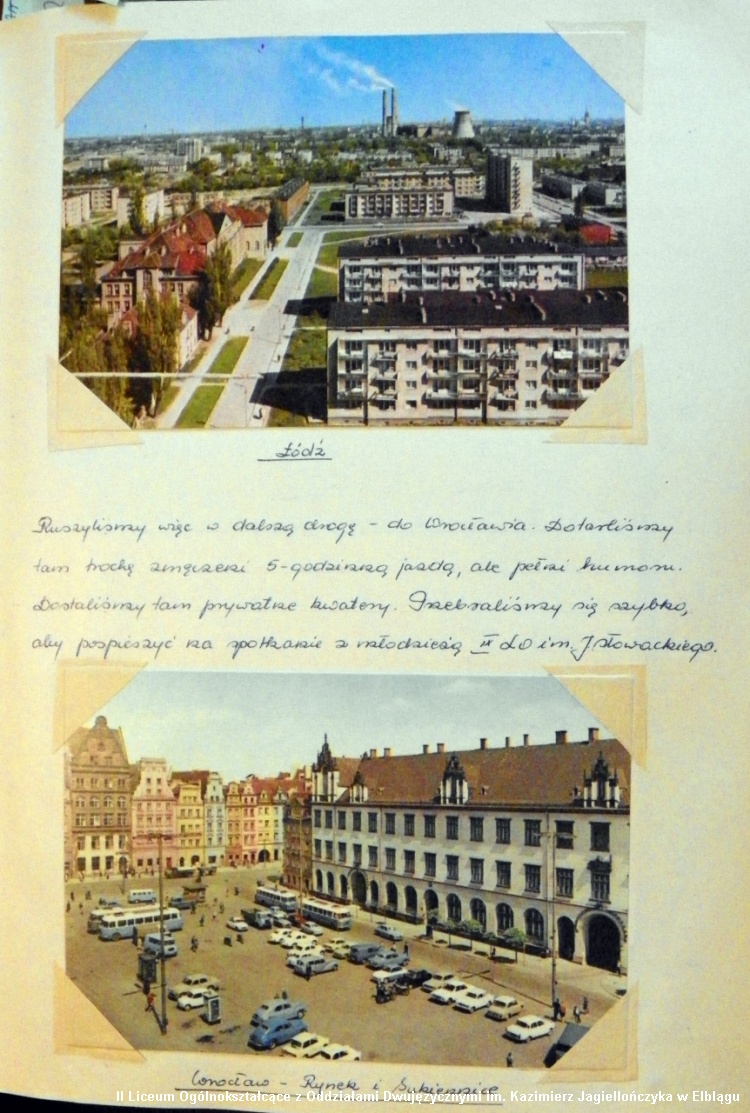 Łódź
Ruszyliśmy więc w dalszą drogę - do Wrocławia. Dotarliśmy
tam trochę zmęczeni 5-godzinną jazdą, ale pełni humoru.
Dostaliśmy tam prywatne kwatery. Przebraliśmy się szybko,
aby pospieszyć na spotkanie z młodzieżą III LO im. J. Słowackiego.
Wrocław - Rynek i Sukiennice
II Liceum Ogólnokształcące z Oddziałami Dwujęzycznymi im. Kazimierz Jagiellończyka w Elblągu